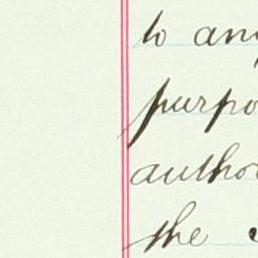 to any
purpo
autho
the